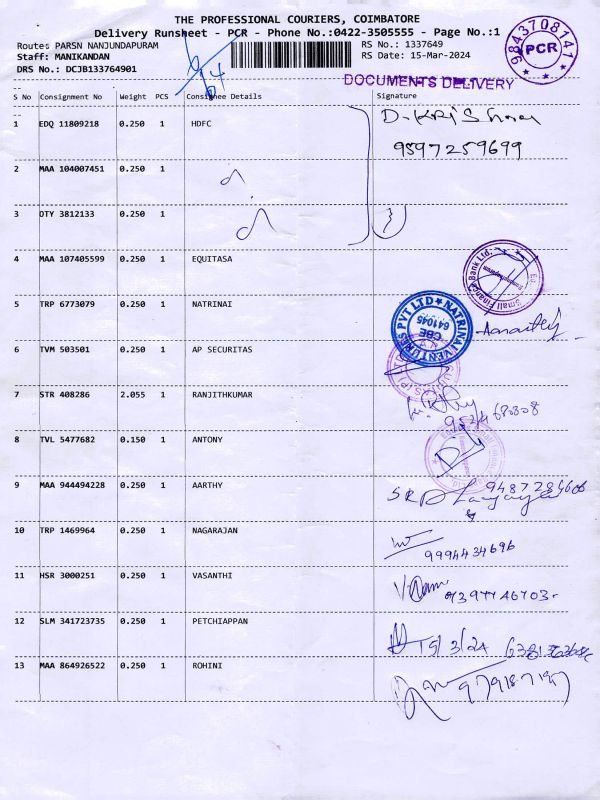 THE PROFESSIONAL COURIERS, COIMBATORE
Delivery Runsheet - PCR - Phone No.:0422-3505555 - Page No.:1
Route: PARSN NANJUNDAPURAM
RS No.: 1337649
Staff: MANIKANDAN
RS Date: 15-Mar-2024
DRS No.: DCJB133764901
9843708141
PCR
DOCUMENTS DELIVERY
S No Consignment No Weight PCS Consignee Details Signature
1 EDQ 11809218 0.250 1 HDFC
9597259699
2 MAA 104007451 0.250 1
3 OTY 3812133 0.250 1
4 MAA 107405599 0.250 1 EQUITASA
Small Finance Bank Ltd.
5 TRP 6773079 0.250 1 NATRINAI
NATRINAI VENTURES PVT LTD
CBE
641045
6 TVM 503501 0.250 1 AP SECURITAS
7 STR 408286 2.055 1 RANJITHKUMAR
8 TVL 5477682 0.150 1 ANTONY
9 MAA 944494228 0.250 1 AARTHY
10 TRP 1469964 0.250 1 NAGARAJAN
9994434696
11 HSR 3000251 0.250 1 VASANTHI
12 SLM 341723735 0.250 1 PETCHIAPPAN
15/3/24
13 MAA 864926522 0.250 1 ROHINI